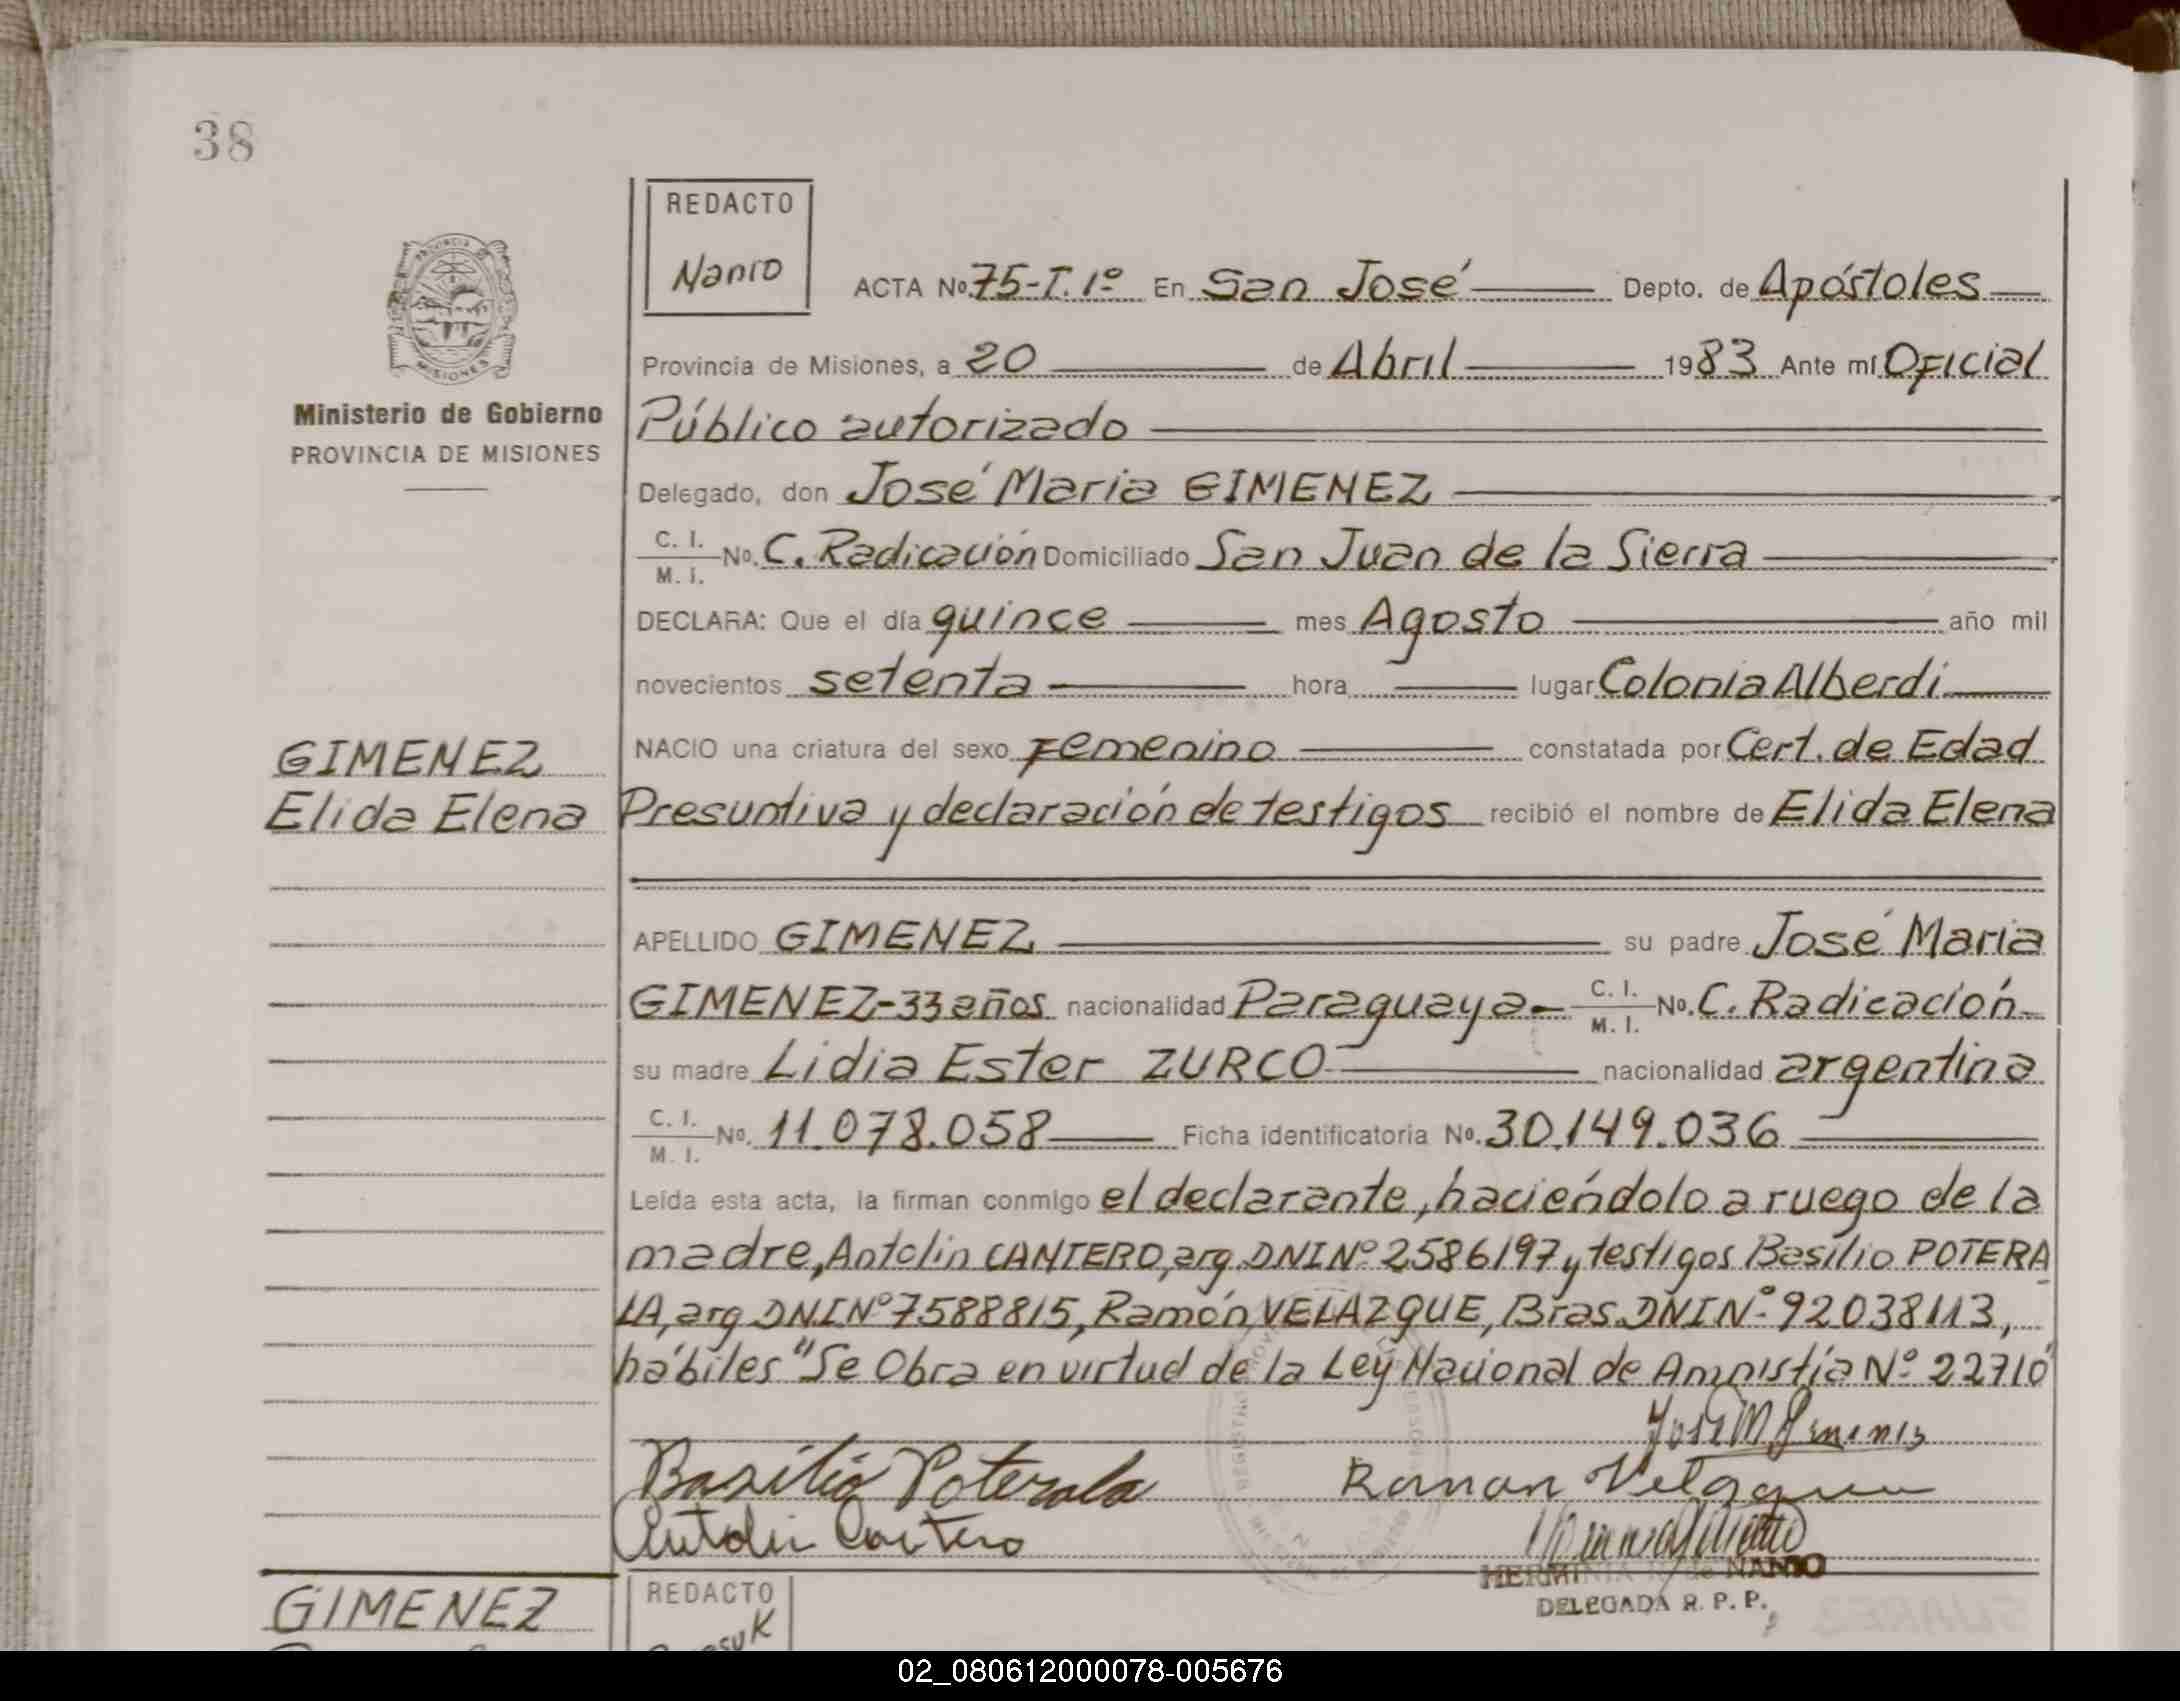 38
REDACTO
Nanio
ACTA No. 75-T. 1º En San José Depto. de Apóstoles
Provincia de Misiones, a 20 de Abril 1983 Ante mí Oficial
Ministerio de Gobierno
PROVINCIA DE MISIONES
Público autorizado
Delegado, don José Maria GIMENEZ
C. I. M. I. No. C. Radicación Domiciliado San Juan de la Sierra
DECLARA: Que el día quince mes Agosto año mil
novecientos setenta hora lugar Colonia Alberdi
GIMENEZ
NACIO una criatura del sexo Femenino constatada por Cert. de Edad
Elida Elena
Presuntiva y declaración de testigos recibió el nombre de Elida Elena
APELLIDO GIMENEZ su padre José Maria
GIMENEZ-33 años nacionalidad Paraguaya- C. I. M. I. No. C. Radicación
su madre Lidia Ester ZURCO nacionalidad argentina
C. I. M. I. No. 11.078.058 Ficha identificatoria No. 30.149.036
Leída esta acta, la firman conmigo el declarante, haciéndolo a ruego de la
madre, Antolin CANTERO, arg. DNI Nº 2586197 y testigos Basilio POTERA
LA, arg. DNI Nº 7588815, Ramón VELAZQUE, Bras. DNI Nº 92038113,
hábiles "Se Obra en virtud de la Ley Nacional de Amnistía Nº 22710
Basilio Poterala
Ramon
Antolin Cantero
HERMINIA de NANIO
DELEGADA R. P. P.
GIMENEZ
REDACTO
02_080612000078-005676